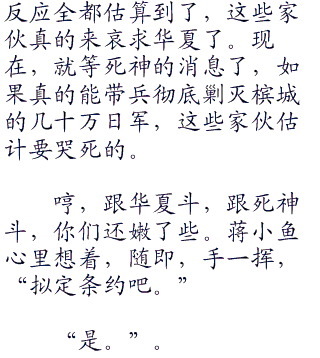 反应全都估算到了，这些家
伙真的来哀求华夏了。现
在，就等死神的消息了，如
果真的能带兵彻底剿灭槟城
的几十万日军，这些家伙估
计要哭死的。
哼，跟华夏斗，跟死神
斗，你们还嫩了些。蒋小鱼
心里想着，随即，手一挥，
“拟定条约吧。”
“是。”。